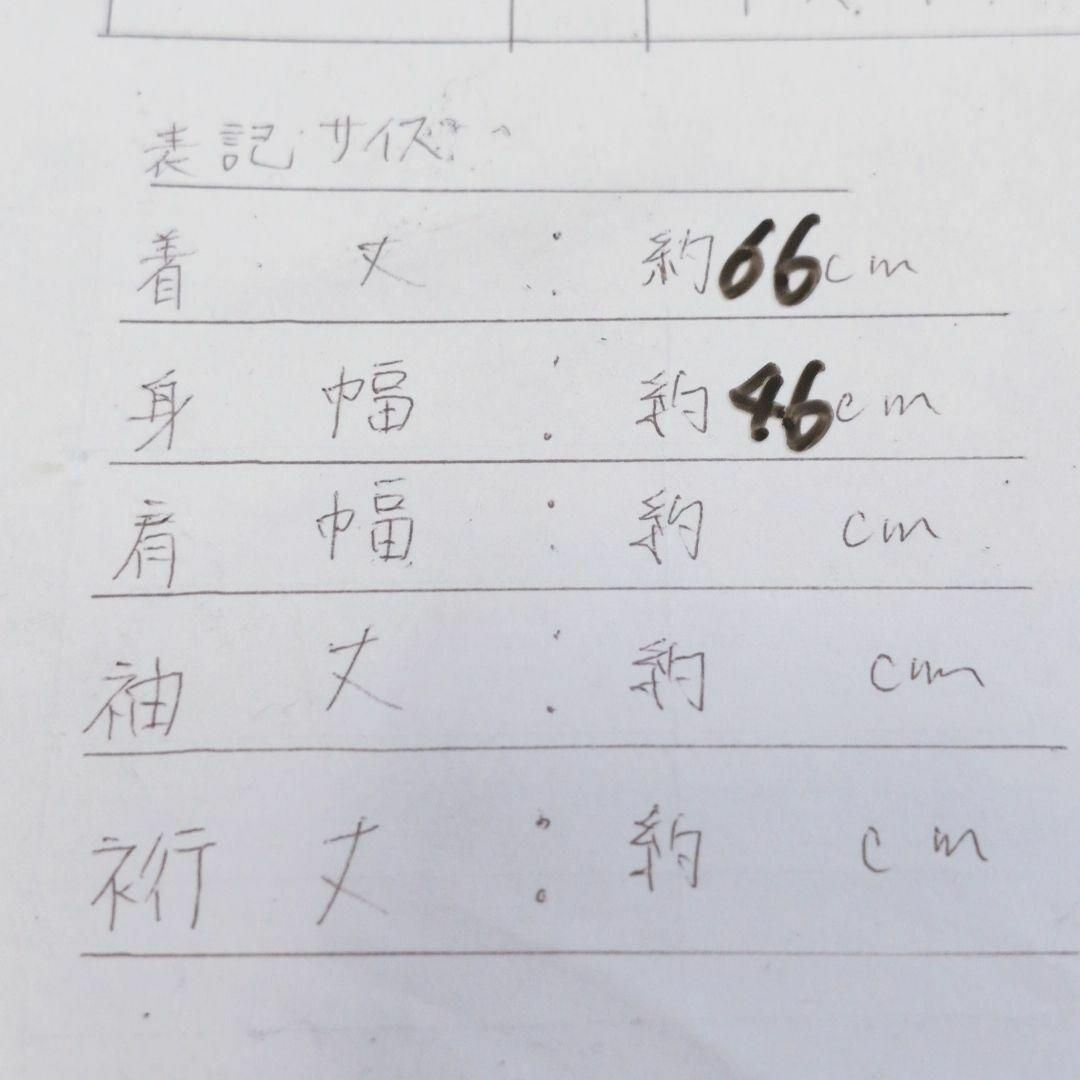 表記サイズ
着丈:約66cm
身幅:約46cm
肩幅:約 cm
袖丈:約 cm
裄丈:約 cm